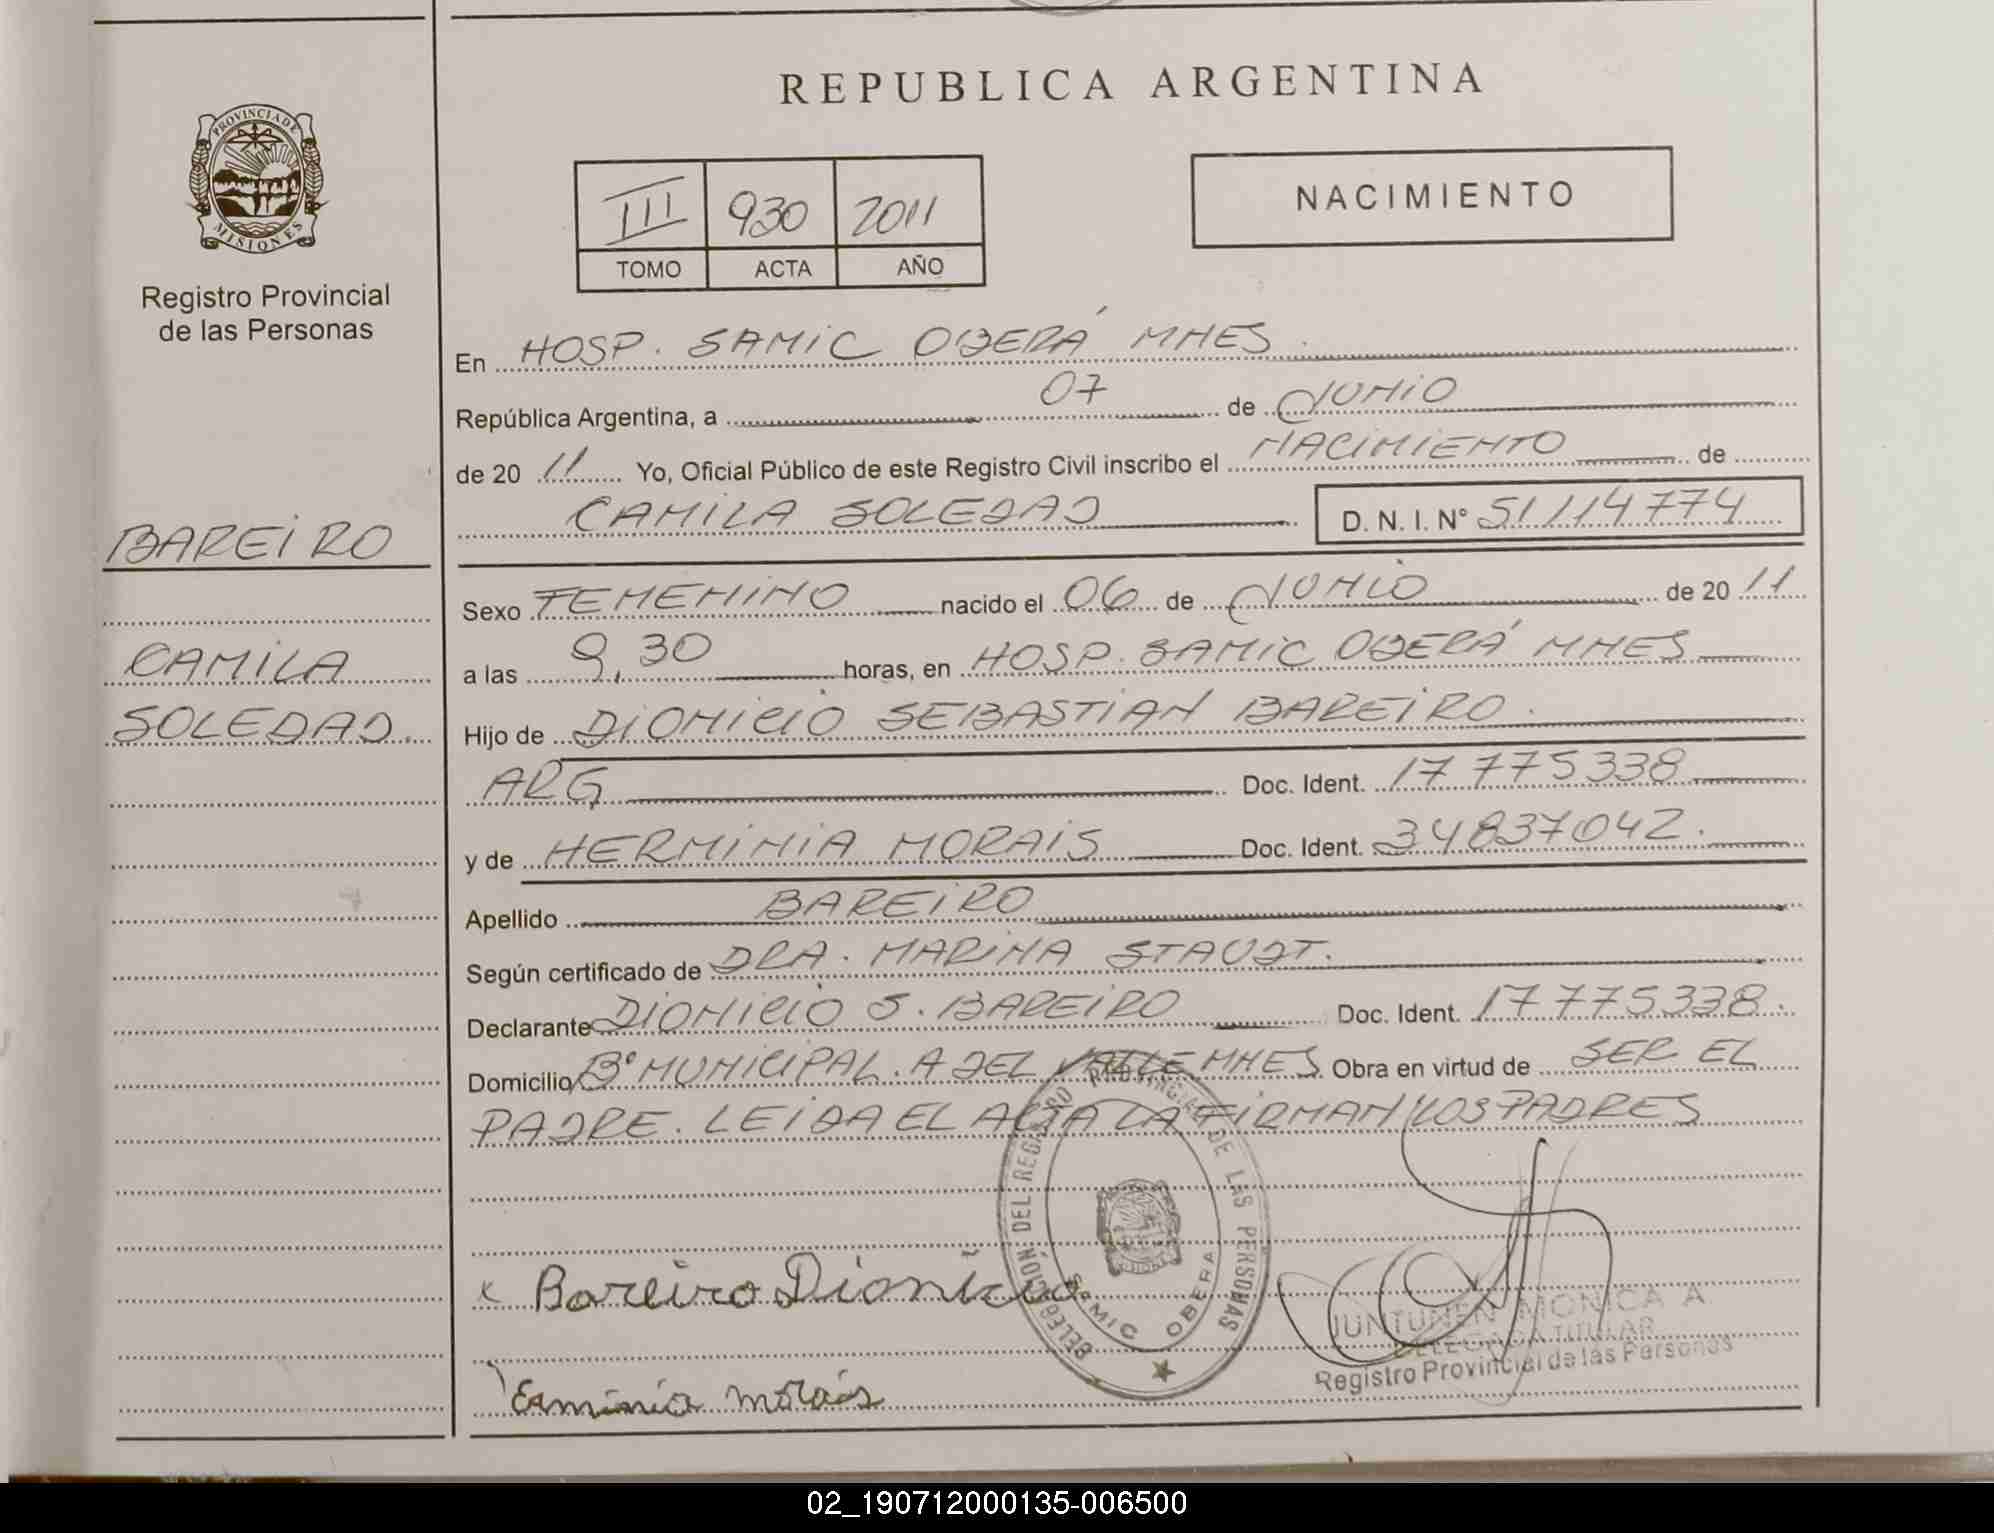 REPUBLICA ARGENTINA
PROVINCIA DE
MISIONES
Registro Provincial
de las Personas
III 930 2011
TOMO ACTA AÑO
NACIMIENTO
En HOSP. SAMIC OBERÁ MNES.
República Argentina, a 07 de JUNIO
de 20 11 Yo, Oficial Público de este Registro Civil inscribo el NACIMIENTO de
CAMILA SOLEDAD D. N. I. N° 51114774
BAREIRO
CAMILA
SOLEDAD.
Sexo FEMENINO nacido el 06 de JUNIO de 20 11
a las 9,30 horas, en HOSP. SAMIC OBERÁ MNES
Hijo de DIONICIO SEBASTIAN BAREIRO.
ARG Doc. Ident. 17 775338
y de HERMINIA MORAIS Doc. Ident. 34837042.
Apellido BAREIRO
Según certificado de DRA. MARINA STAUDT.
Declarante DIONICIO S. BAREIRO Doc. Ident. 17 775338.
Domicilio B° MUNICIPAL. A DEL VALLE MNES Obra en virtud de SER EL
PADRE. LEIDA EL ACTA LA FIRMAN LOS PADRES
x Bareiro Dionicio
Erminia morais
DELEGACIÓN DEL REGISTRO PROVINCIAL DE LAS PERSONAS
SAMIC OBERA
JUNTUNEN MONICA A
DELEGADA TITULAR
Registro Provincial de las Personas
02_190712000135-006500